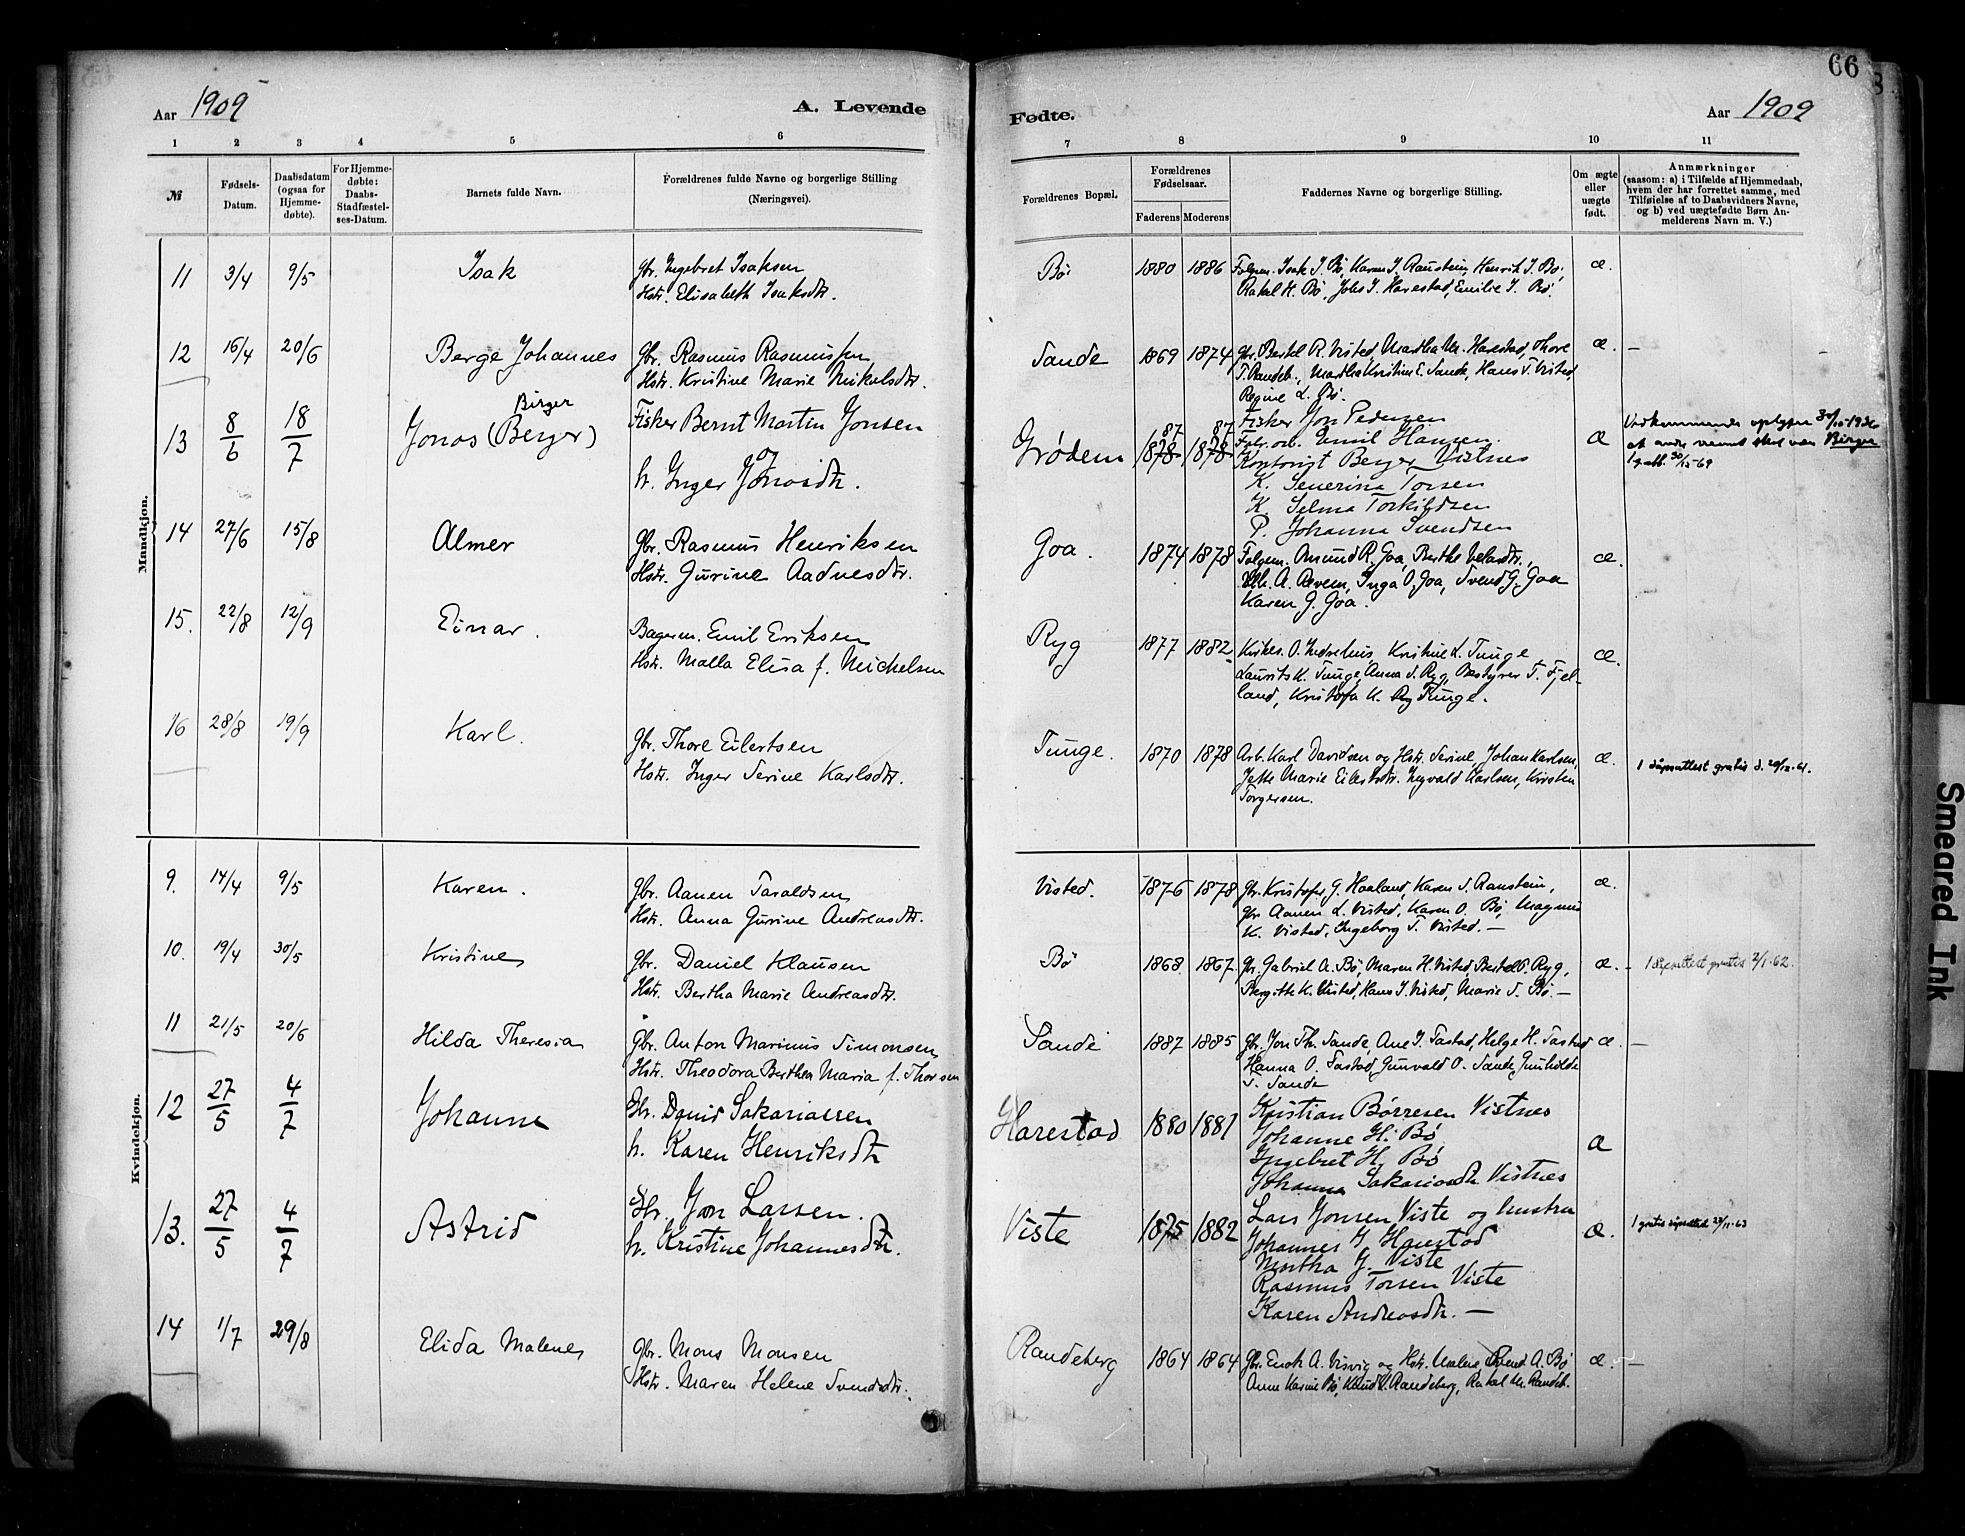 66
Aar 1909 A. Levende
Fødte. Aar 1909
1 2 3 4 5 6
7 8 9 10 11
№ Fødsels-Datum. Daabsdatum (ogsaa for Hjemmedøbte). For Hjemmedøbte: Daabs-Stadfæstelses-Datum. Barnets fulde Navn. Forældrenes fulde Navne og borgerlige Stilling (Næringsvei).
Forældrenes Bopæl. Forældrenes Fødselsaar. Faderens Moderens Faddernes Navne og borgerlige Stilling. Om ægte eller uægte født. Anmærkninger (saasom: a) i Tilfælde af Hjemmedaab, hvem der har forrettet samme, med Tilføielse af to Daabsvidners Navne, og b) ved uægtefødte Børn Anmelderens Navn m. V.)
Mandkjøn.
11 3/4 9/5 Isak Gbr. Ingebret Isaksen
Hstr. Elisabeth Isaksdtr.
Bø 1880 1886 Følgem. Isak J. Bø, Karen J. Raustein, Henrik J. Bø, æ.
Rakel H. Bø, Johs J. Harestad, Emilie J. Bø.
12 16/4 20/6 Berge Johannes Gbr. Rasmus Rasmussen
Hstr. Kristine Marie Nikolsdtr.
Sande 1869 1874 Gbr. Bertel R. Visted, Martha M. Harestad, Thore æ. —
T. Randeb., Martha Kristine E. Sande, Hans T. Visted,
Regine L. Bø.
13 8/6 18/7 Jonas (Berger) Birger Fisker Bernt Martin Jonsen
og
h. Inger Jonosdtr.
Grødem 1878 87 1878 87 Fisker Jon Pedersen æ
Emil Hansen
Kontorist Berger Vistnes
K. Severina Torsen
K. Selma Torkildsen
P. Johanna Svendsen
Vedkommende oplyser
at andre navnet skal være Birger
14 27/6 15/8 Almer Gbr. Rasmus Henriksen
Hstr. Gurine Aadnesdtr.
Goa. 1874 1878 Følgem. Amund R. Goa, Berthe Velasdtr., æ.
A. Revem, Inga O. Goa, Svend G. Goa
Karen G. Goa.
15. 22/8 12/9 Einar. Bagerm. Emil Eriksen
Hstr. Malla Elisa f. Michelsen
Ryg 1877 1882 O. Indrehus, Kristine L. Tunge, æ.
Laurits K. Tunge, Anna S. Ryg, Bestyrer T. Fjel-
land, Kristofa K. Tunge.
16 28/8 19/9 Karl. Gbr. Thore Eilertsen
Hstr. Inger Serine Karlsdtr.
Tunge. 1870 1878 Arb. Karl Davidsen og Hstr. Serine, Johan Karlsen, æ. 1 dåpsattest gratis d. 29/12-61.
Jette Marie Eilertsdtr. Ingvald Karlsen, Kirsten
Torgersen.
Kvindekjøn.
9. 14/4 9/5 Karen. Gbr. Aanen Taraldsen
Hstr. Anna Gurine Andreasdtr.
Visted. 1876 1878 Gbr. Kristofer G. Haaland, Karen S. Raustein, æ.
Gbr Aanen L. Visted, Karen O. Bø, Magnus
K. Visted, Ingeborg T. Visted. —
10. 19/4 30/5 Kristine Gbr. Daniel Klausen
Hstr. Bertha Marie Andreasdtr.
Bø 1868 1867 Gbr. Gabriel A. Bø, Maren H. Visted, Bertel O. Ryg, æ. — 1 dåpsattest gratis 2/1-62.
Bergitte K. Visted, Hans J. Visted, Marie S. Bø. —
11 21/5 20/6 Hilda Theresia Gbr. Anton Marinus Simonsen
Hstr. Theodora Berthea Maria f. Thorsen
Sande 1887 1885 Gbr. Jon Th. Sande, Ane J. Tastad, Helge H. Tastad æ. —
Hanna O. Tastad, Gunvald O. Sande, Gunhilde
T. Sande
12 27/5 4/7 Johanne Gbr. David Sakariassen
h. Karen Henriksdtr
Harestad 1880 1881 Kristian Børresen Vistnes æ
Johanne H. Bø
Ingebret H. Bø
Johanna Sakariasdtr Vistnes
13. 27/5 4/7 Astrid Gbr. Jon Larsen.
h. Kristine Johannesdtr.
Viste 1875 1882 Lars Jonsen Viste og hustru æ. 1 gratis dåpsattest 23/11-63
Johannes J Harestad
Martha J. Viste
Rasmus Torsen Viste
Karen Andreasdtr. —
14 1/7 29/8 Elida Malene Gbr. Mons Monsen
Hstr. Maren Helene Svendsdtr.
Randeberg 1864 1864 Gbr. Enok A. Visvig og Hstr. Malene, Svend A. Bø æ. —
Anne Karine Bø, Knud V. Randeberg, Rakel M. Randeb.
Smeared Ink